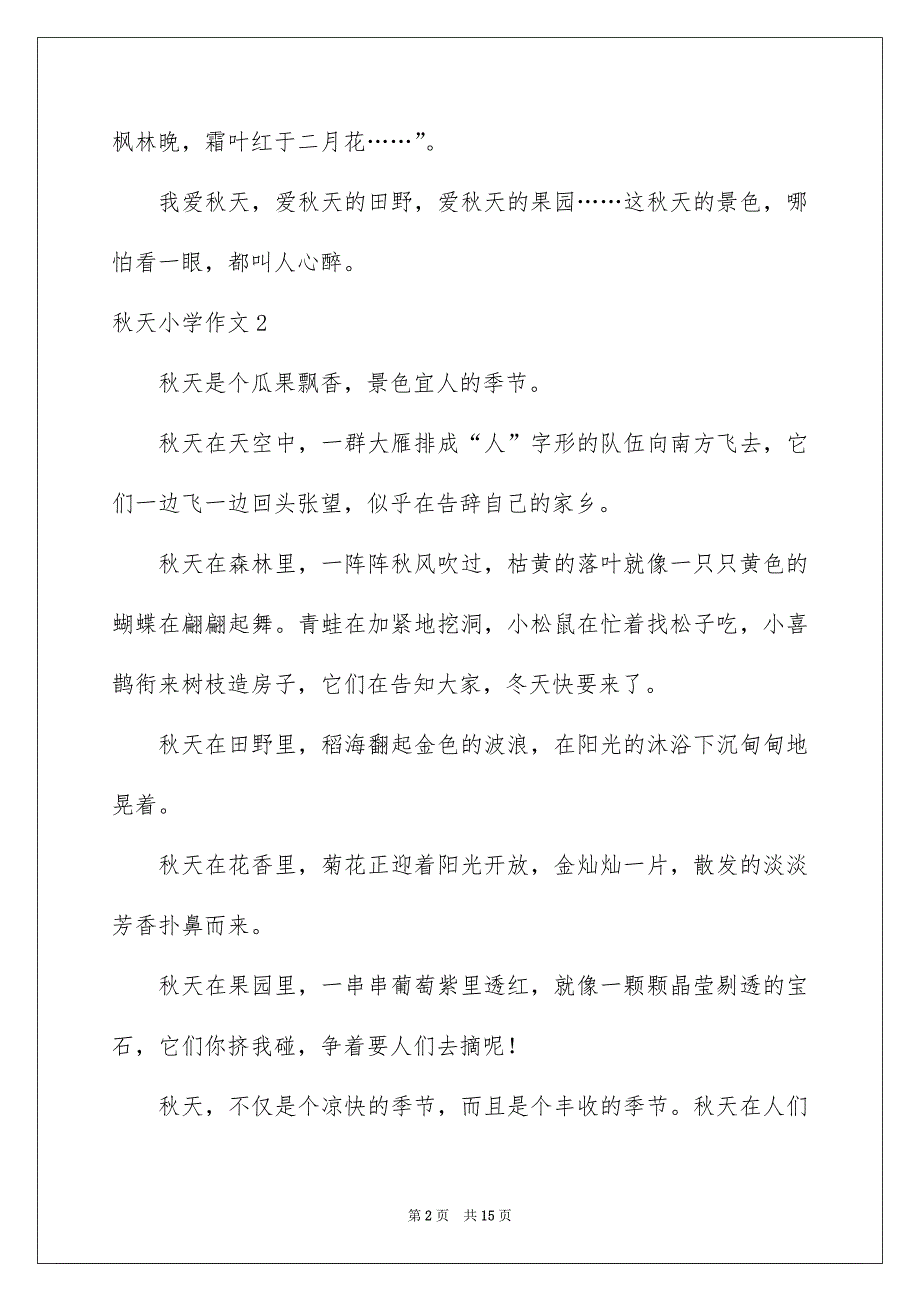 枫林晚，霜叶红于二月花……”。
我爱秋天，爱秋天的田野，爱秋天的果园……这秋天的景色，哪
怕看一眼，都叫人心醉。
秋天小学作文 2
秋天是个瓜果飘香，景色宜人的季节。
秋天在天空中，一群大雁排成“人”字形的队伍向南方飞去，它
们一边飞一边回头张望，似乎在告辞自己的家乡。
秋天在森林里，一阵阵秋风吹过，枯黄的落叶就像一只只黄色的
蝴蝶在翩翩起舞。青蛙在加紧地挖洞，小松鼠在忙着找松子吃，小喜
鹊衔来树枝造房子，它们在告知大家，冬天快要来了。
秋天在田野里，稻海翻起金色的波浪，在阳光的沐浴下沉甸甸地
晃着。
秋天在花香里，菊花正迎着阳光开放，金灿灿一片，散发的淡淡
芳香扑鼻而来。
秋天在果园里，一串串葡萄紫里透红，就像一颗颗晶莹剔透的宝
石，它们你挤我碰，争着要人们去摘呢！
秋天，不仅是个凉快的季节，而且是个丰收的季节。秋天在人们
第 2 页 共 15 页